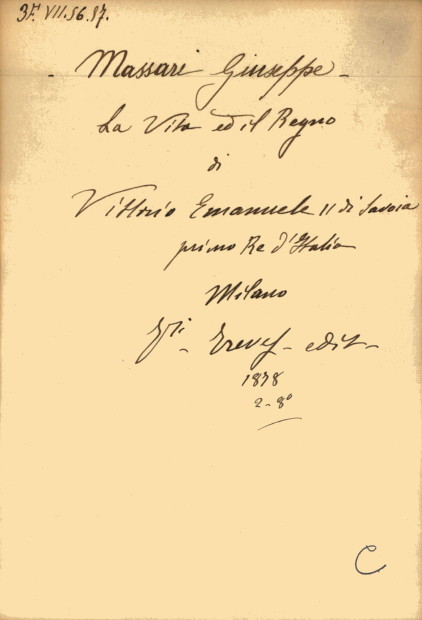 3F. VII. 56. 57.
- Massari Giuseppe -
La Vita ed il Regno
di
Vittorio Emanuele II di Savoia
primo Re d'Italia
Milano
F.lli - Treves - edit -
1878
2 - 8°
C